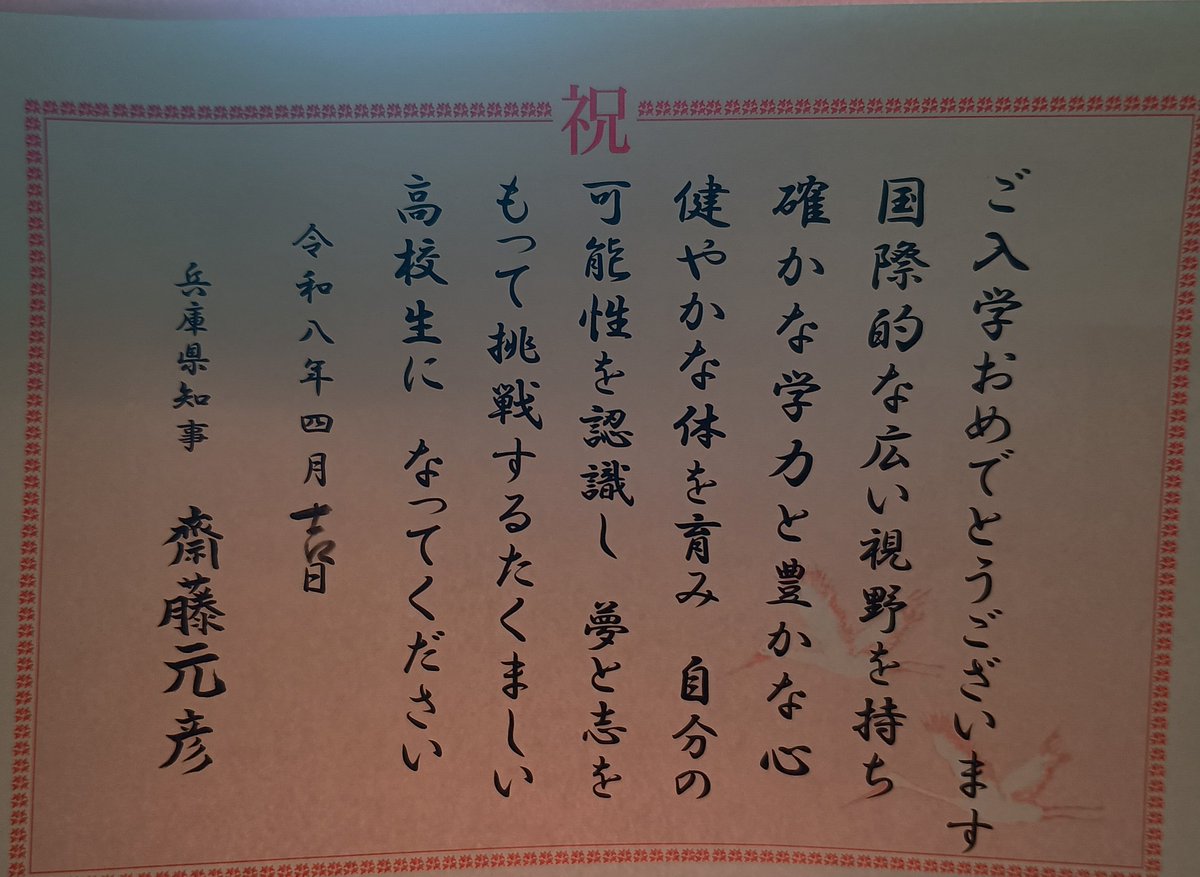 祝
ご入学おめでとうございます
国際的な広い視野を持ち
確かな学力と豊かな心
健やかな体を育み　自分の
可能性を認識し　夢と志を
もって挑戦するたくましい
高校生に　なってください
令和八年四月吉日
兵庫県知事　齋藤元彦